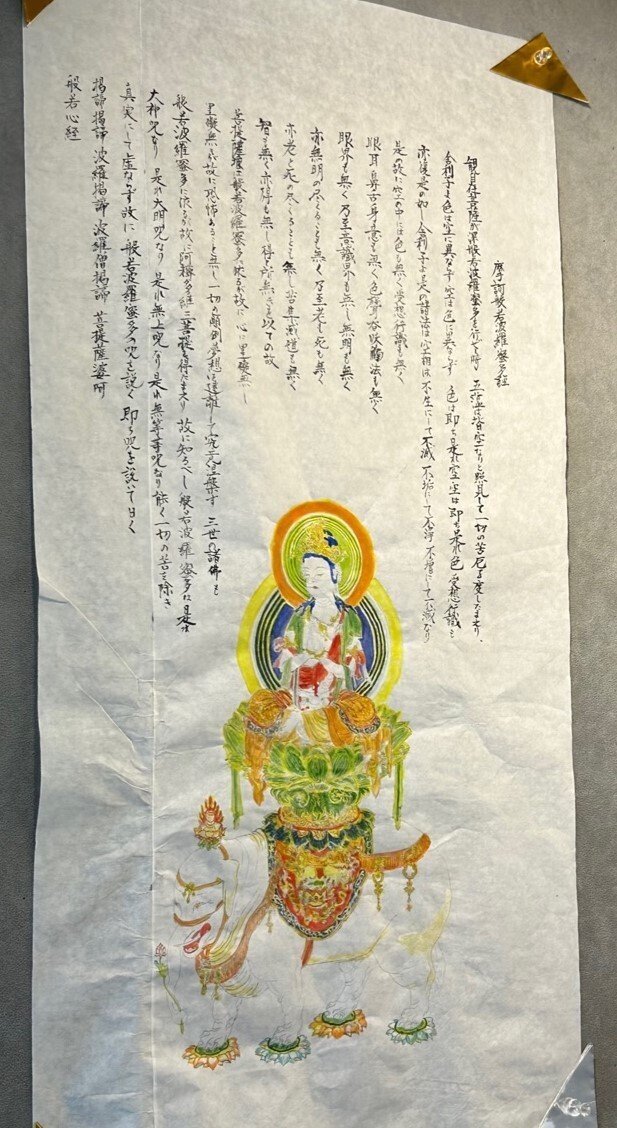 摩訶般若波羅蜜多経
観自在菩薩が深般若波羅蜜多を行ずる時 五蘊は皆空なりと照見して一切の苦厄を度したまえり、
舎利子よ色は空に異ならず空は色に異ならず 色は即ち是れ空 空は即ち是れ色 受想行識も
亦復是の如し 舎利子よ是の諸法は空相は 不生にして不滅 不垢にして不浄 不増にして不減なり
是の故に空の中には色も無く受想行識も無く
眼耳鼻舌身意も無く色声香味触法も無く
眼界も無く乃至意識界も無し 無明も無く
亦無明の尽くることも無く 乃至老も死も無く
亦老と死の尽くることも無し 苦集滅道も無く
智も無く亦得も無し 得る所無きを以ての故
菩提薩埵は般若波羅蜜多に依るが故に 心に罣礙無し
罣礙無きが故に恐怖あること無し 一切の顛倒夢想を遠離して究竟涅槃す 三世の諸佛も
般若波羅蜜多に依るが故に阿耨多羅三菩提を得たまえり 故に知るべし 般若波羅蜜多は是れ
大神呪なり 是れ大明呪なり 是れ無上呪なり 是れ無等等呪なり 能く一切の苦を除き
真実にして虚ならず故に 般若波羅蜜多の呪を説く 即ち呪を説いて曰く
掲諦掲諦 波羅掲諦 波羅僧掲諦 菩提薩婆呵
般若心経